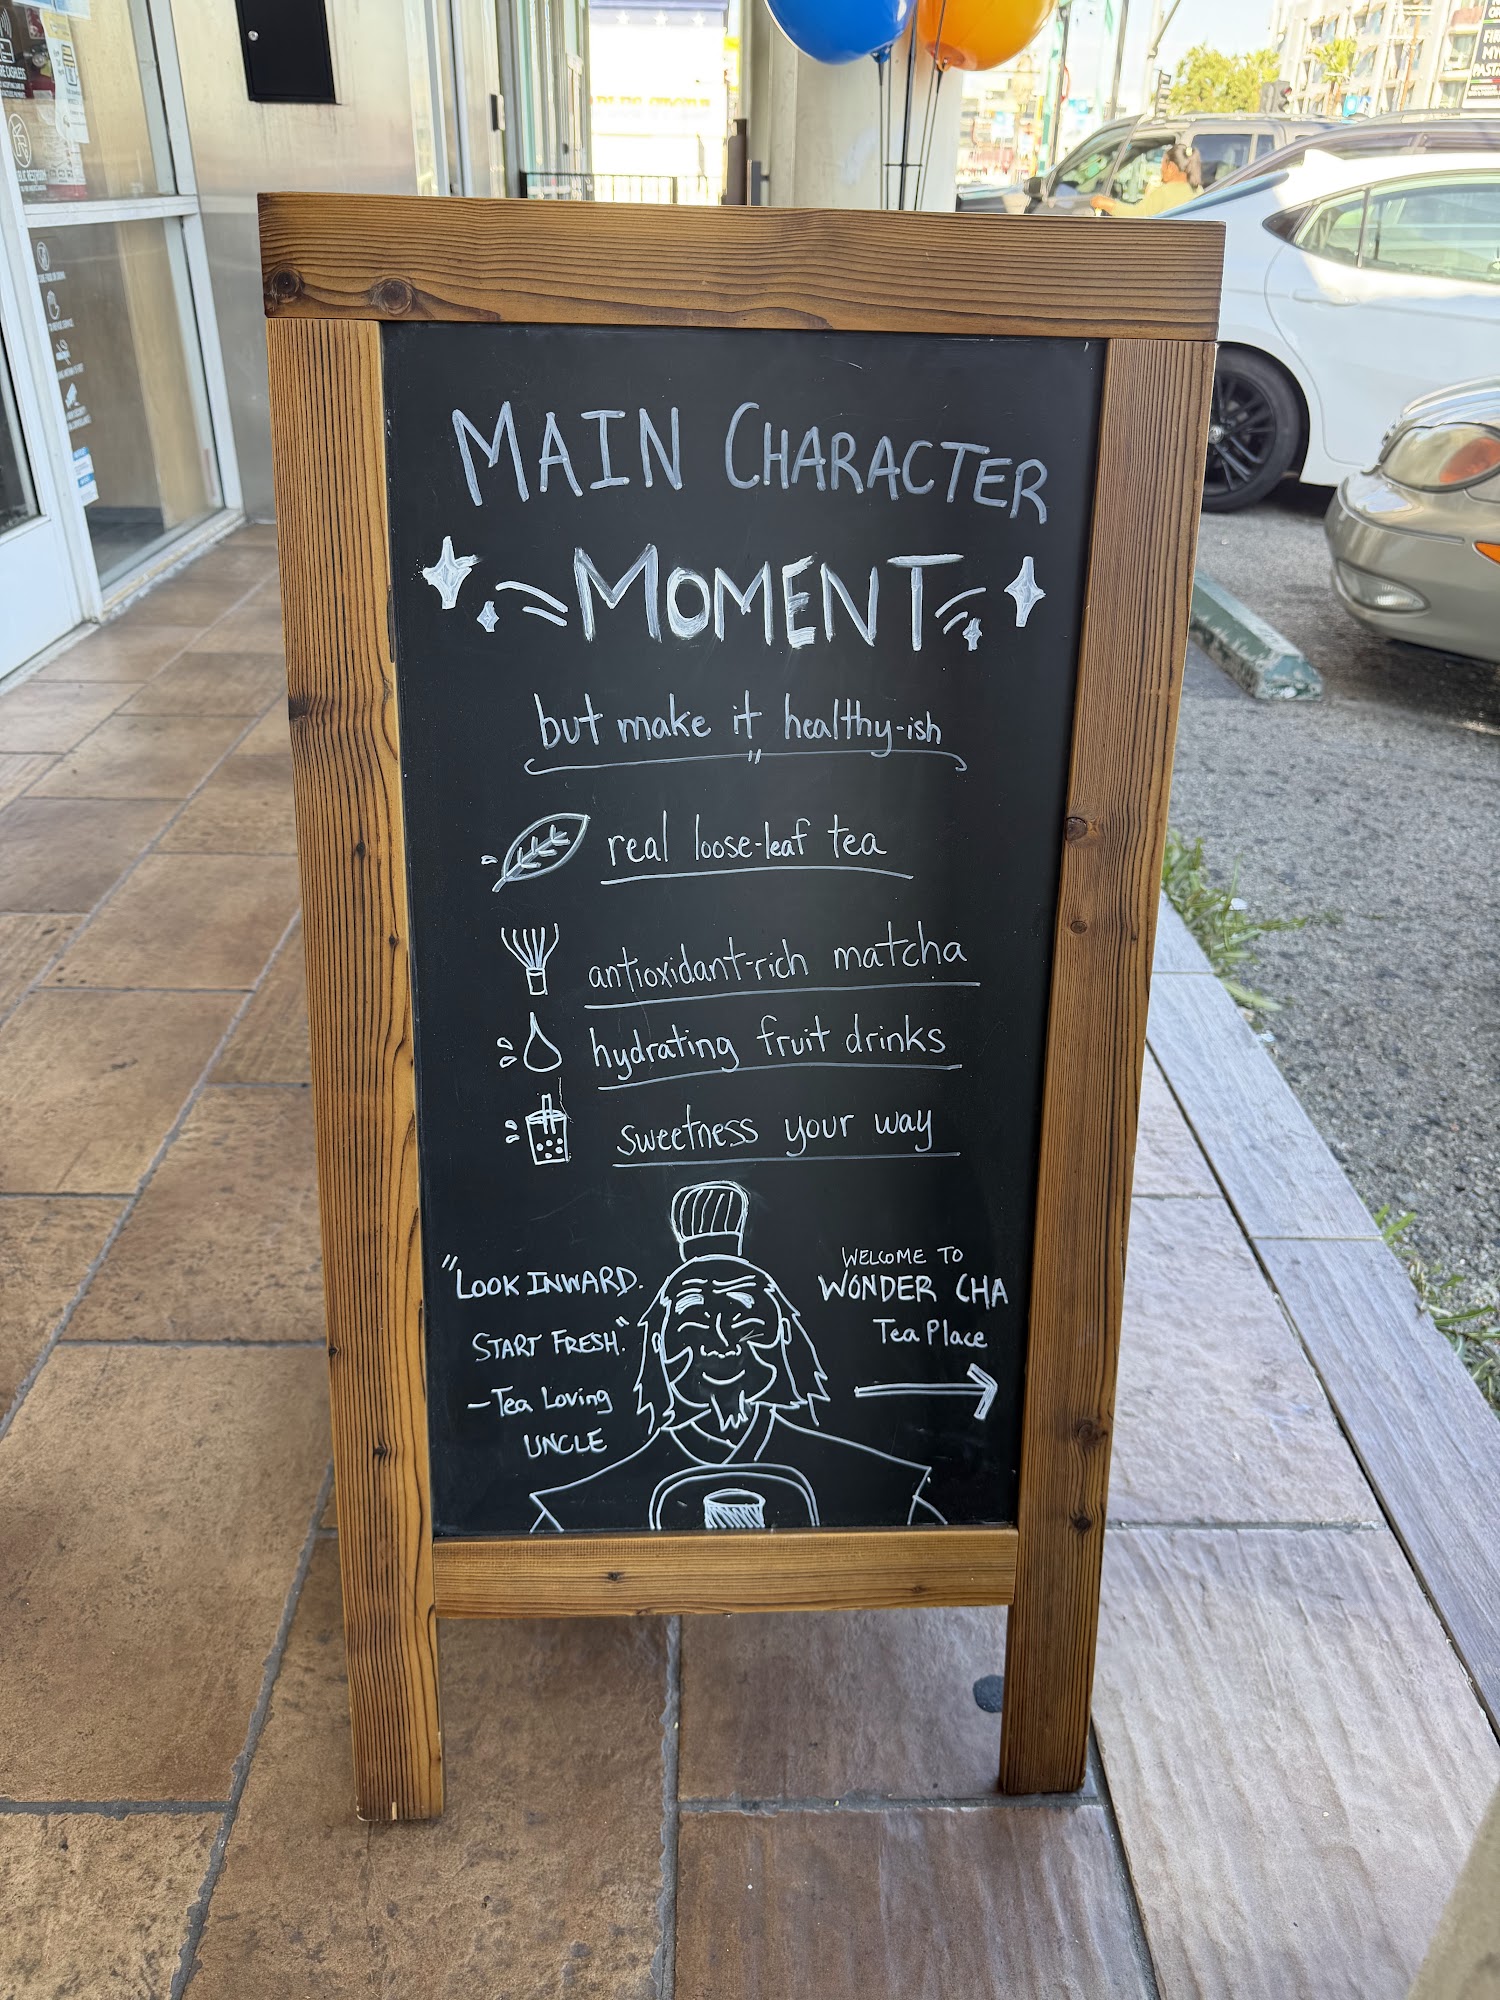 MAIN CHARACTER
MOMENT
but make it healthy-ish
real loose-leaf tea
antioxidant-rich matcha
hydrating fruit drinks
sweetness your way
"LOOK INWARD.
START FRESH."
-Tea Loving
UNCLE
WELCOME TO
WONDER CHA
Tea Place